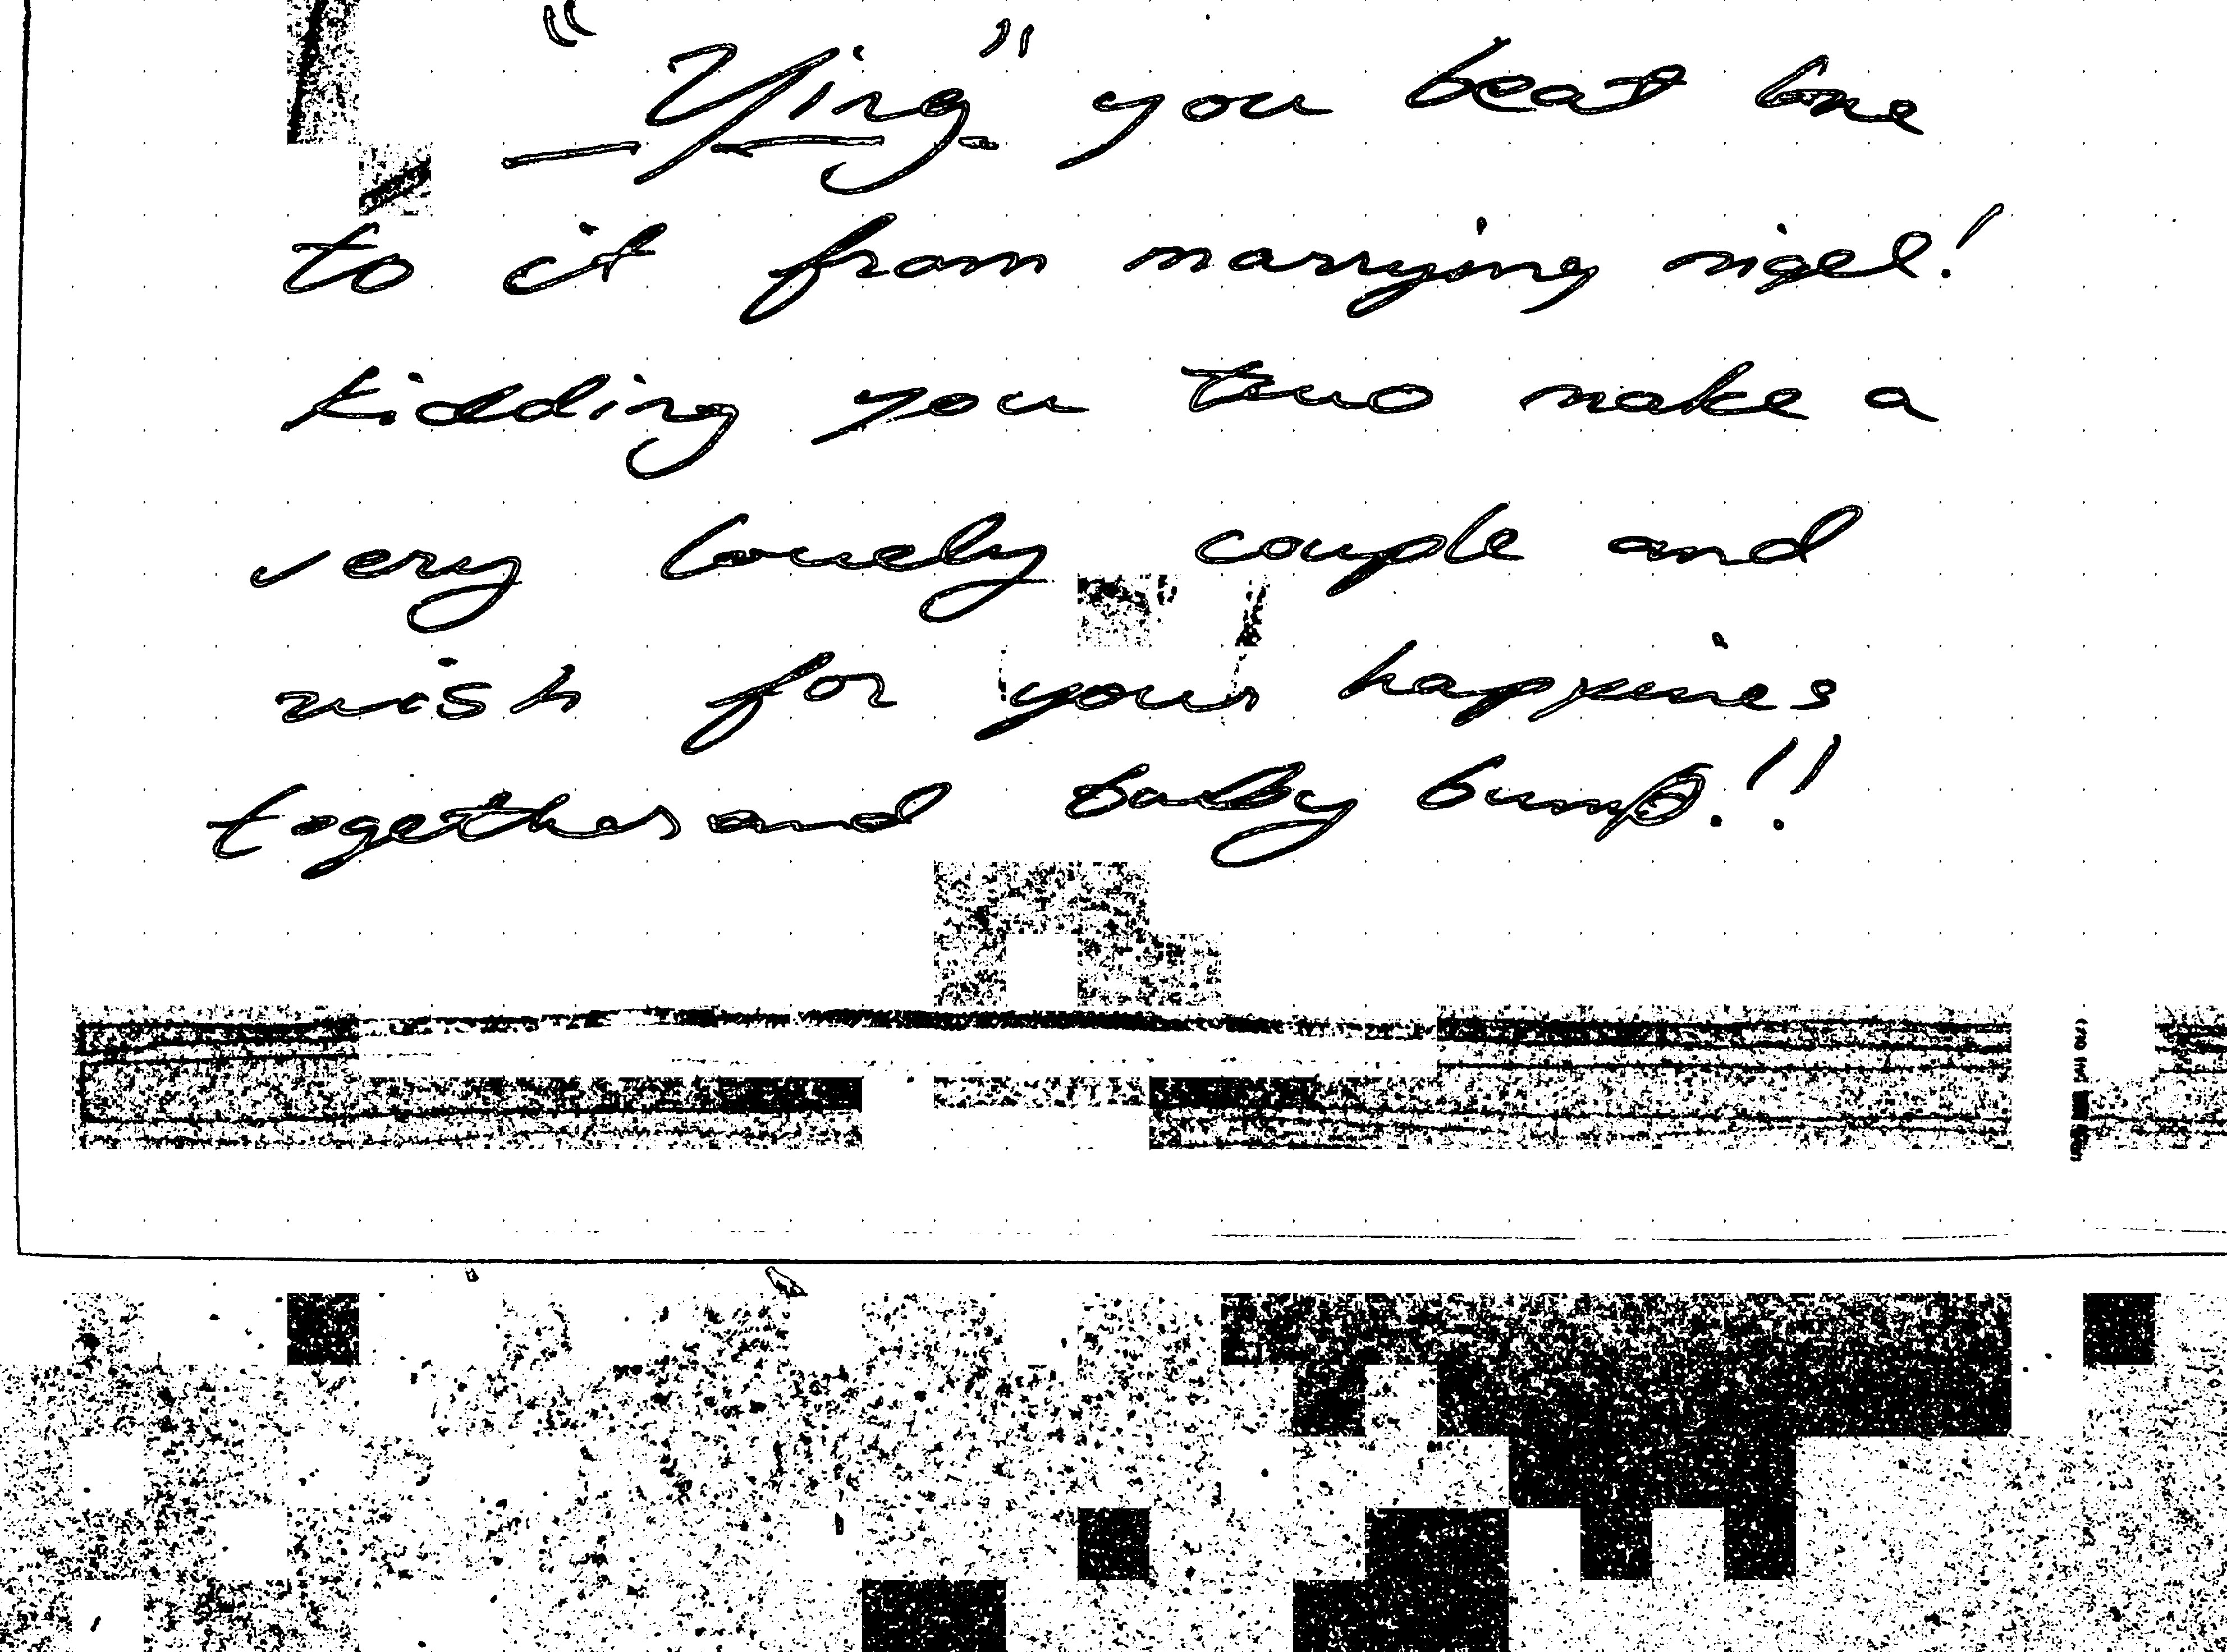 "Ying" you beat me
to it from marrying nigel!
kidding you two make a
very lovely couple and
wish for your happines
together and baby bump!!!